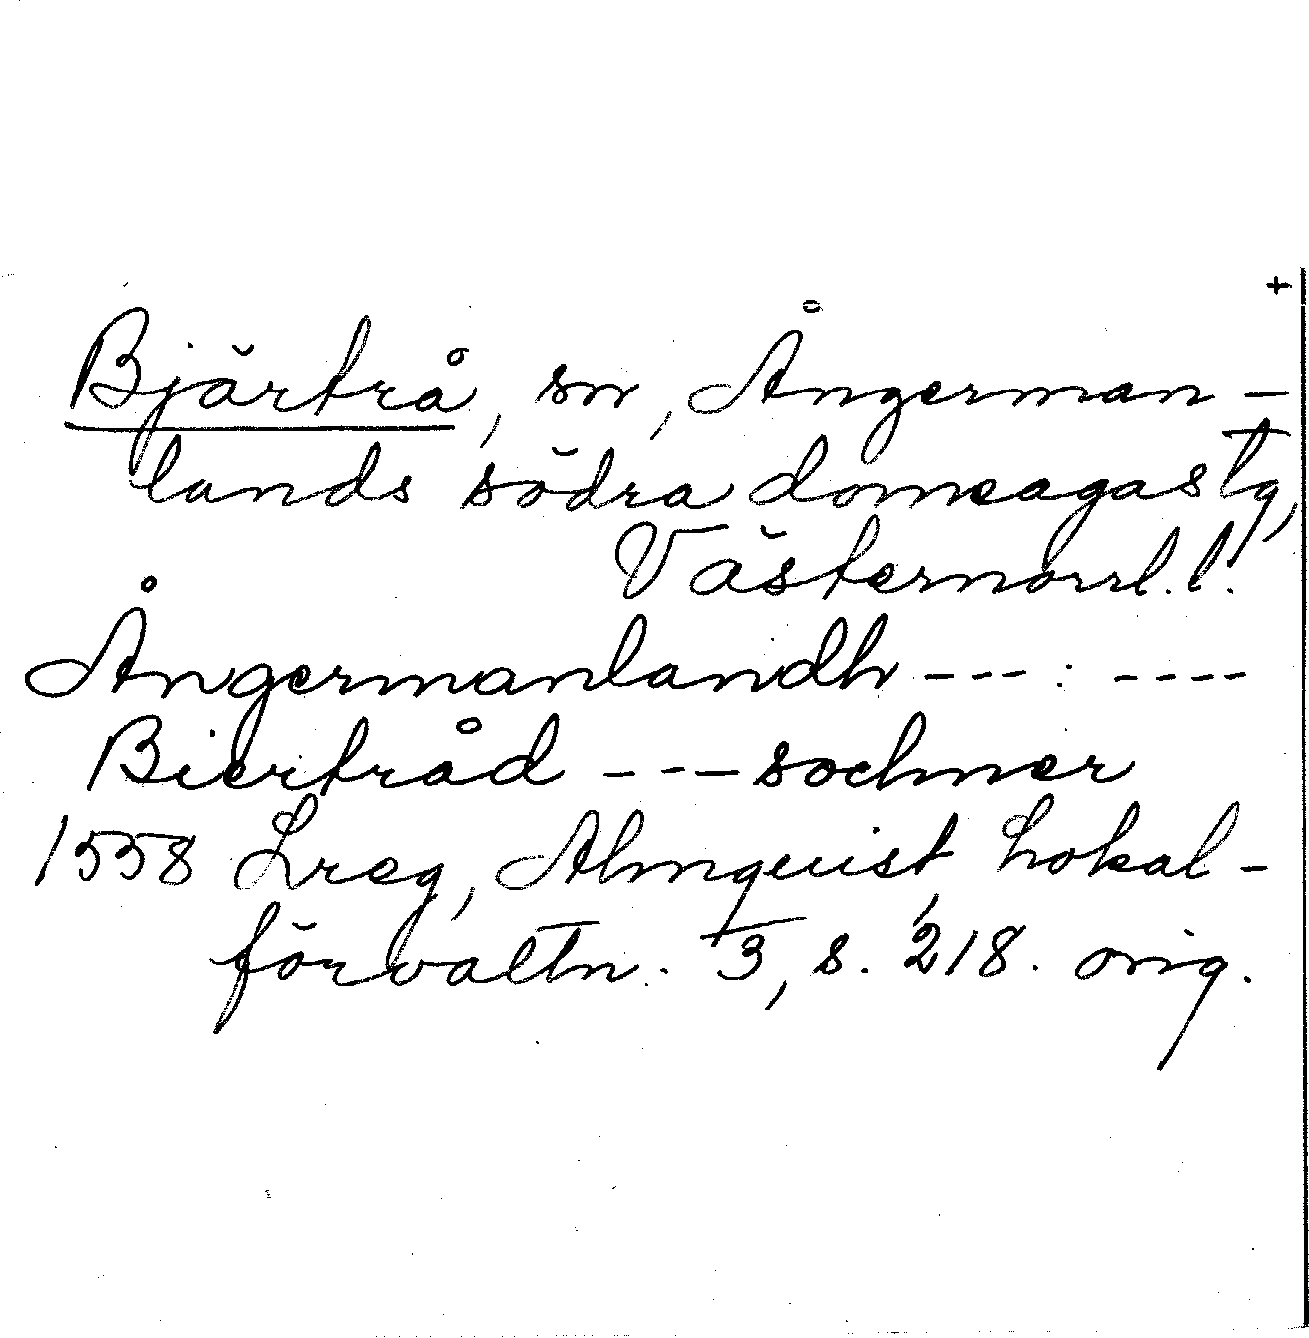 +
Bjärtrå, sn, Ångerman-
lands södra domsagas tg,
Västernorrl. l.
Ångermanlandh --- : ----
Biertråd --- sochner
1558 Lreg, Almquist, Lokal-
förvaltn. 3, s. 218. orig.